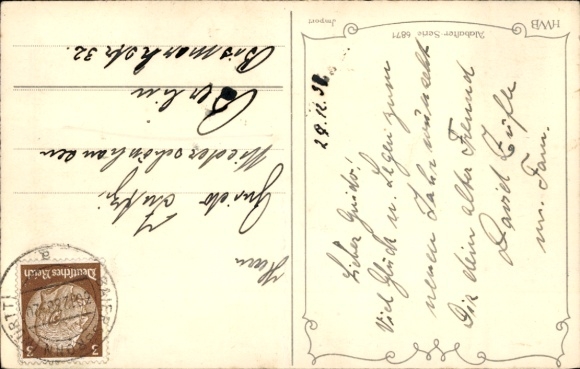 HWB
Import
Alabaster Serie 6871
29.12.38
Lieber Guido!
Viel Glück u. Segen zum
neuen Jahr wünscht
Dir dein alter Freund
David
u. Fam.
Herrn
Guido
Niederschönhausen
Berlin
Bismarckstr 32.
Deutsches Reich
3 3